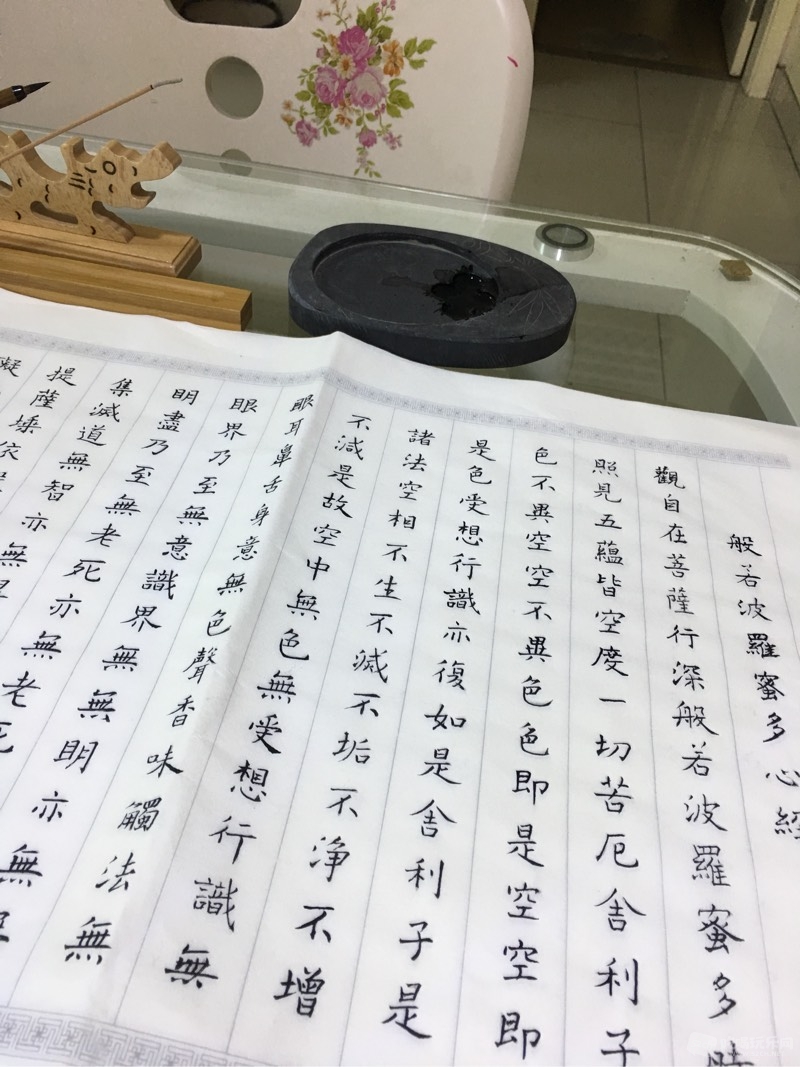 般若波羅蜜多心經
觀自在菩薩行深般若波羅蜜多時
照見五蘊皆空度一切苦厄舍利子
色不異空空不異色色即是空空即
是色受想行識亦復如是舍利子是
諸法空相不生不滅不垢不净不增
不減是故空中無色無受想行識無
眼耳鼻舌身意無色聲香味觸法無
眼界乃至無意識界無無明亦無
明盡乃至無老死亦無老死
集滅道無智亦無
提薩埵依
礙